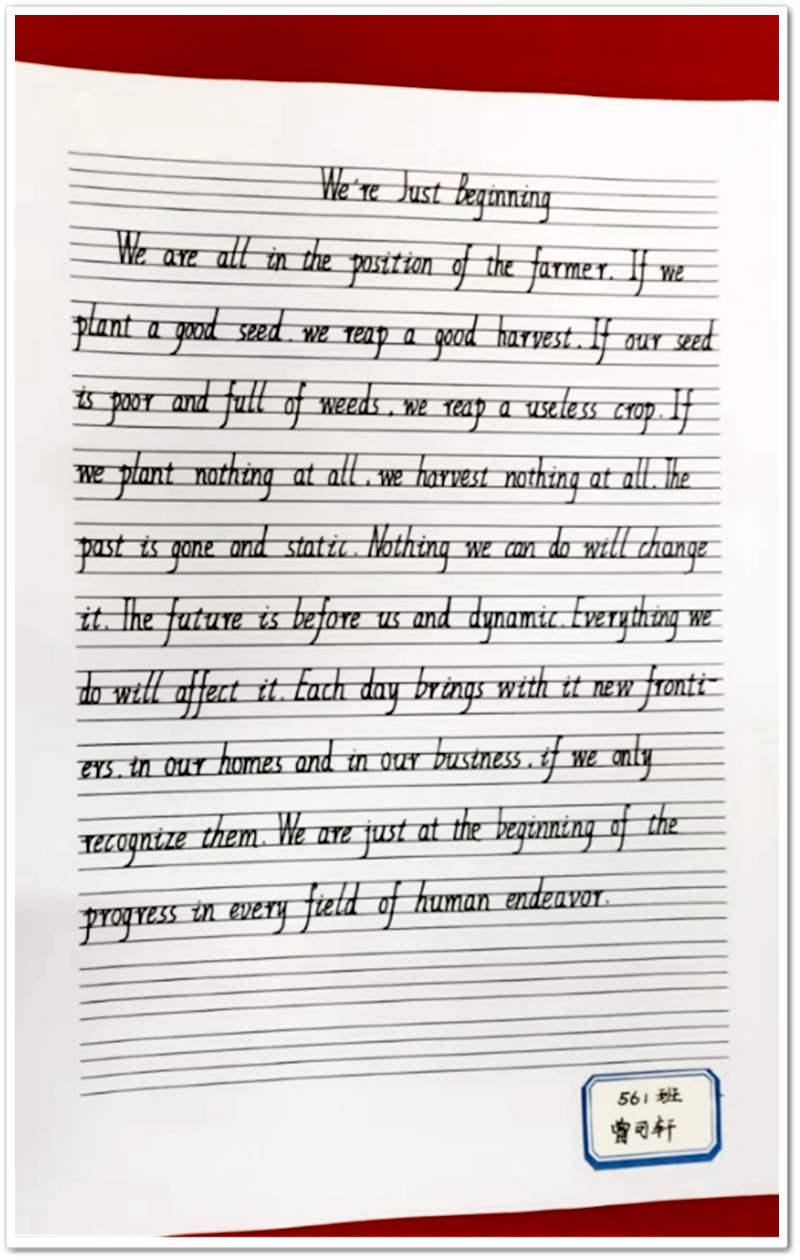 We're Just Beginning
We are all in the position of the farmer. If we
plant a good seed, we reap a good harvest. If our seed
is poor and full of weeds, we reap a useless crop. If
we plant nothing at all, we harvest nothing at all. The
past is gone and static. Nothing we can do will change
it. The future is before us and dynamic. Everything we
do will affect it. Each day brings with it new fronti-
ers, in our homes and in our business, if we only
recognize them. We are just at the beginning of the
progress in every field of human endeavor.
561班
曾司轩